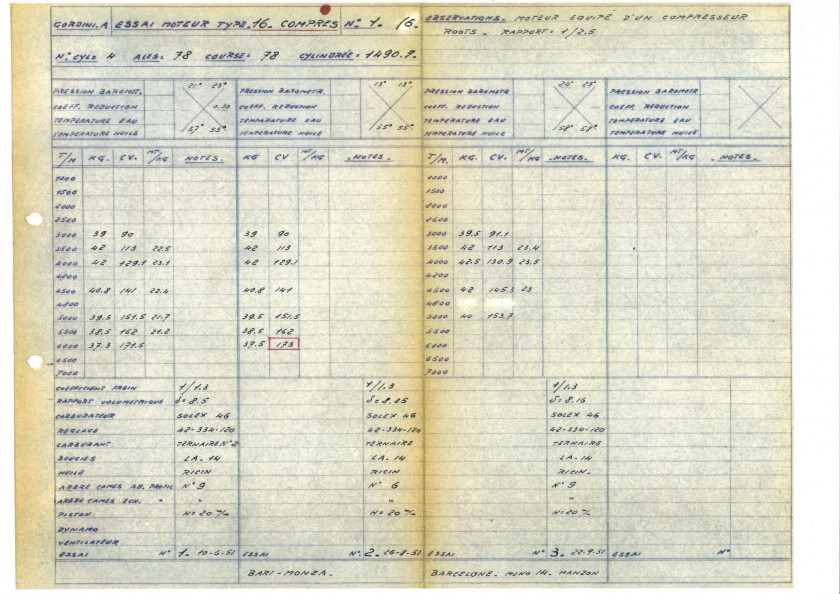 GORDINI.A ESSAI MOTEUR TYPE.16. COMPRES N°. 1. 16.
OBSERVATIONS. MOTEUR EQUIPÉ D'UN COMPRESSEUR
ROOTS. RAPPORT = 1/2.5
N°. CYL = 4 ALES = 78 COURSE = 78 CYLINDRÉE = 1490.7.
21° 23° 13° 13° 24° 25°
PRESSION BAROMET. PRESSION BAROMETR. PRESSION BAROMETR PRESSION BAROMETR
COEFF. REDUCTION 0.10 COEFF. REDUCTION COEFF. REDUCTION COEFF. REDUCTION
TEMPERATURE EAU TEMPERATURE EAU TEMPERATURE EAU TEMPERATURE EAU
TEMPERATURE HUILE 57° 55° TEMPERATURE HUILE 55° 55° TEMPERATURE HUILE 58° 58° TEMPERATURE HUILE
T/M. KG. CV. MT/KG NOTES. KG CV. MT/KG NOTES. T/M. KG. CV. MT/KG NOTES. KG. CV. MT/KG NOTES.
1000 1000
1500 1500
2000 2000
2500 2500
3000 39 90 39 90 3000 39.5 91.1
3500 42 113 22.5 42 113 3500 42 113 23.4
4000 42 129.1 23.1 42 129.1 4000 42.5 130.9 23.5
4200 4200
4500 40.8 141 22.4 40.8 141 4500 42 145.3 23
4800 4800
5000 39.5 151.5 21.7 39.5 151.5 5000 40 153.7
5500 38.5 162 21.2 38.5 162 5500
6000 37.3 171.5 37.5 173 6000
6500 6500
7000 7000
COEFFICIENT FREIN 1/1.3 1/1.3 1/1.3
RAPPORT VOLUMETRIQUE δ= 8.5 δ= 8.25 δ= 8.16
CARBURATEUR SOLEX 46 SOLEX 46 SOLEX 46
REGLAGE 42-334-120 42-334-120 42-334-120
CARBURANT TERNAIRE N°2 TERNAIRE TERNAIRE
BOUGIES LA. 14 LA. 14 LA. 14
HUILE RICIN RICIN RICIN.
ARBRE CAMES AD. PROFIL N° 9 N° 6 N° 9
ARBRE CAMES ECH. " " " "
PISTON H=20 % H=20 % H=20 %
DYNAMO
VENTILATEUR
ESSAI N° 1. 10-6-51 ESSAI N°. 2. 26-8-51 ESSAI N° 3. 22-9-51 ESSAI N°
BARI-MONZA. BARCELONE. MONO 14. MANZON